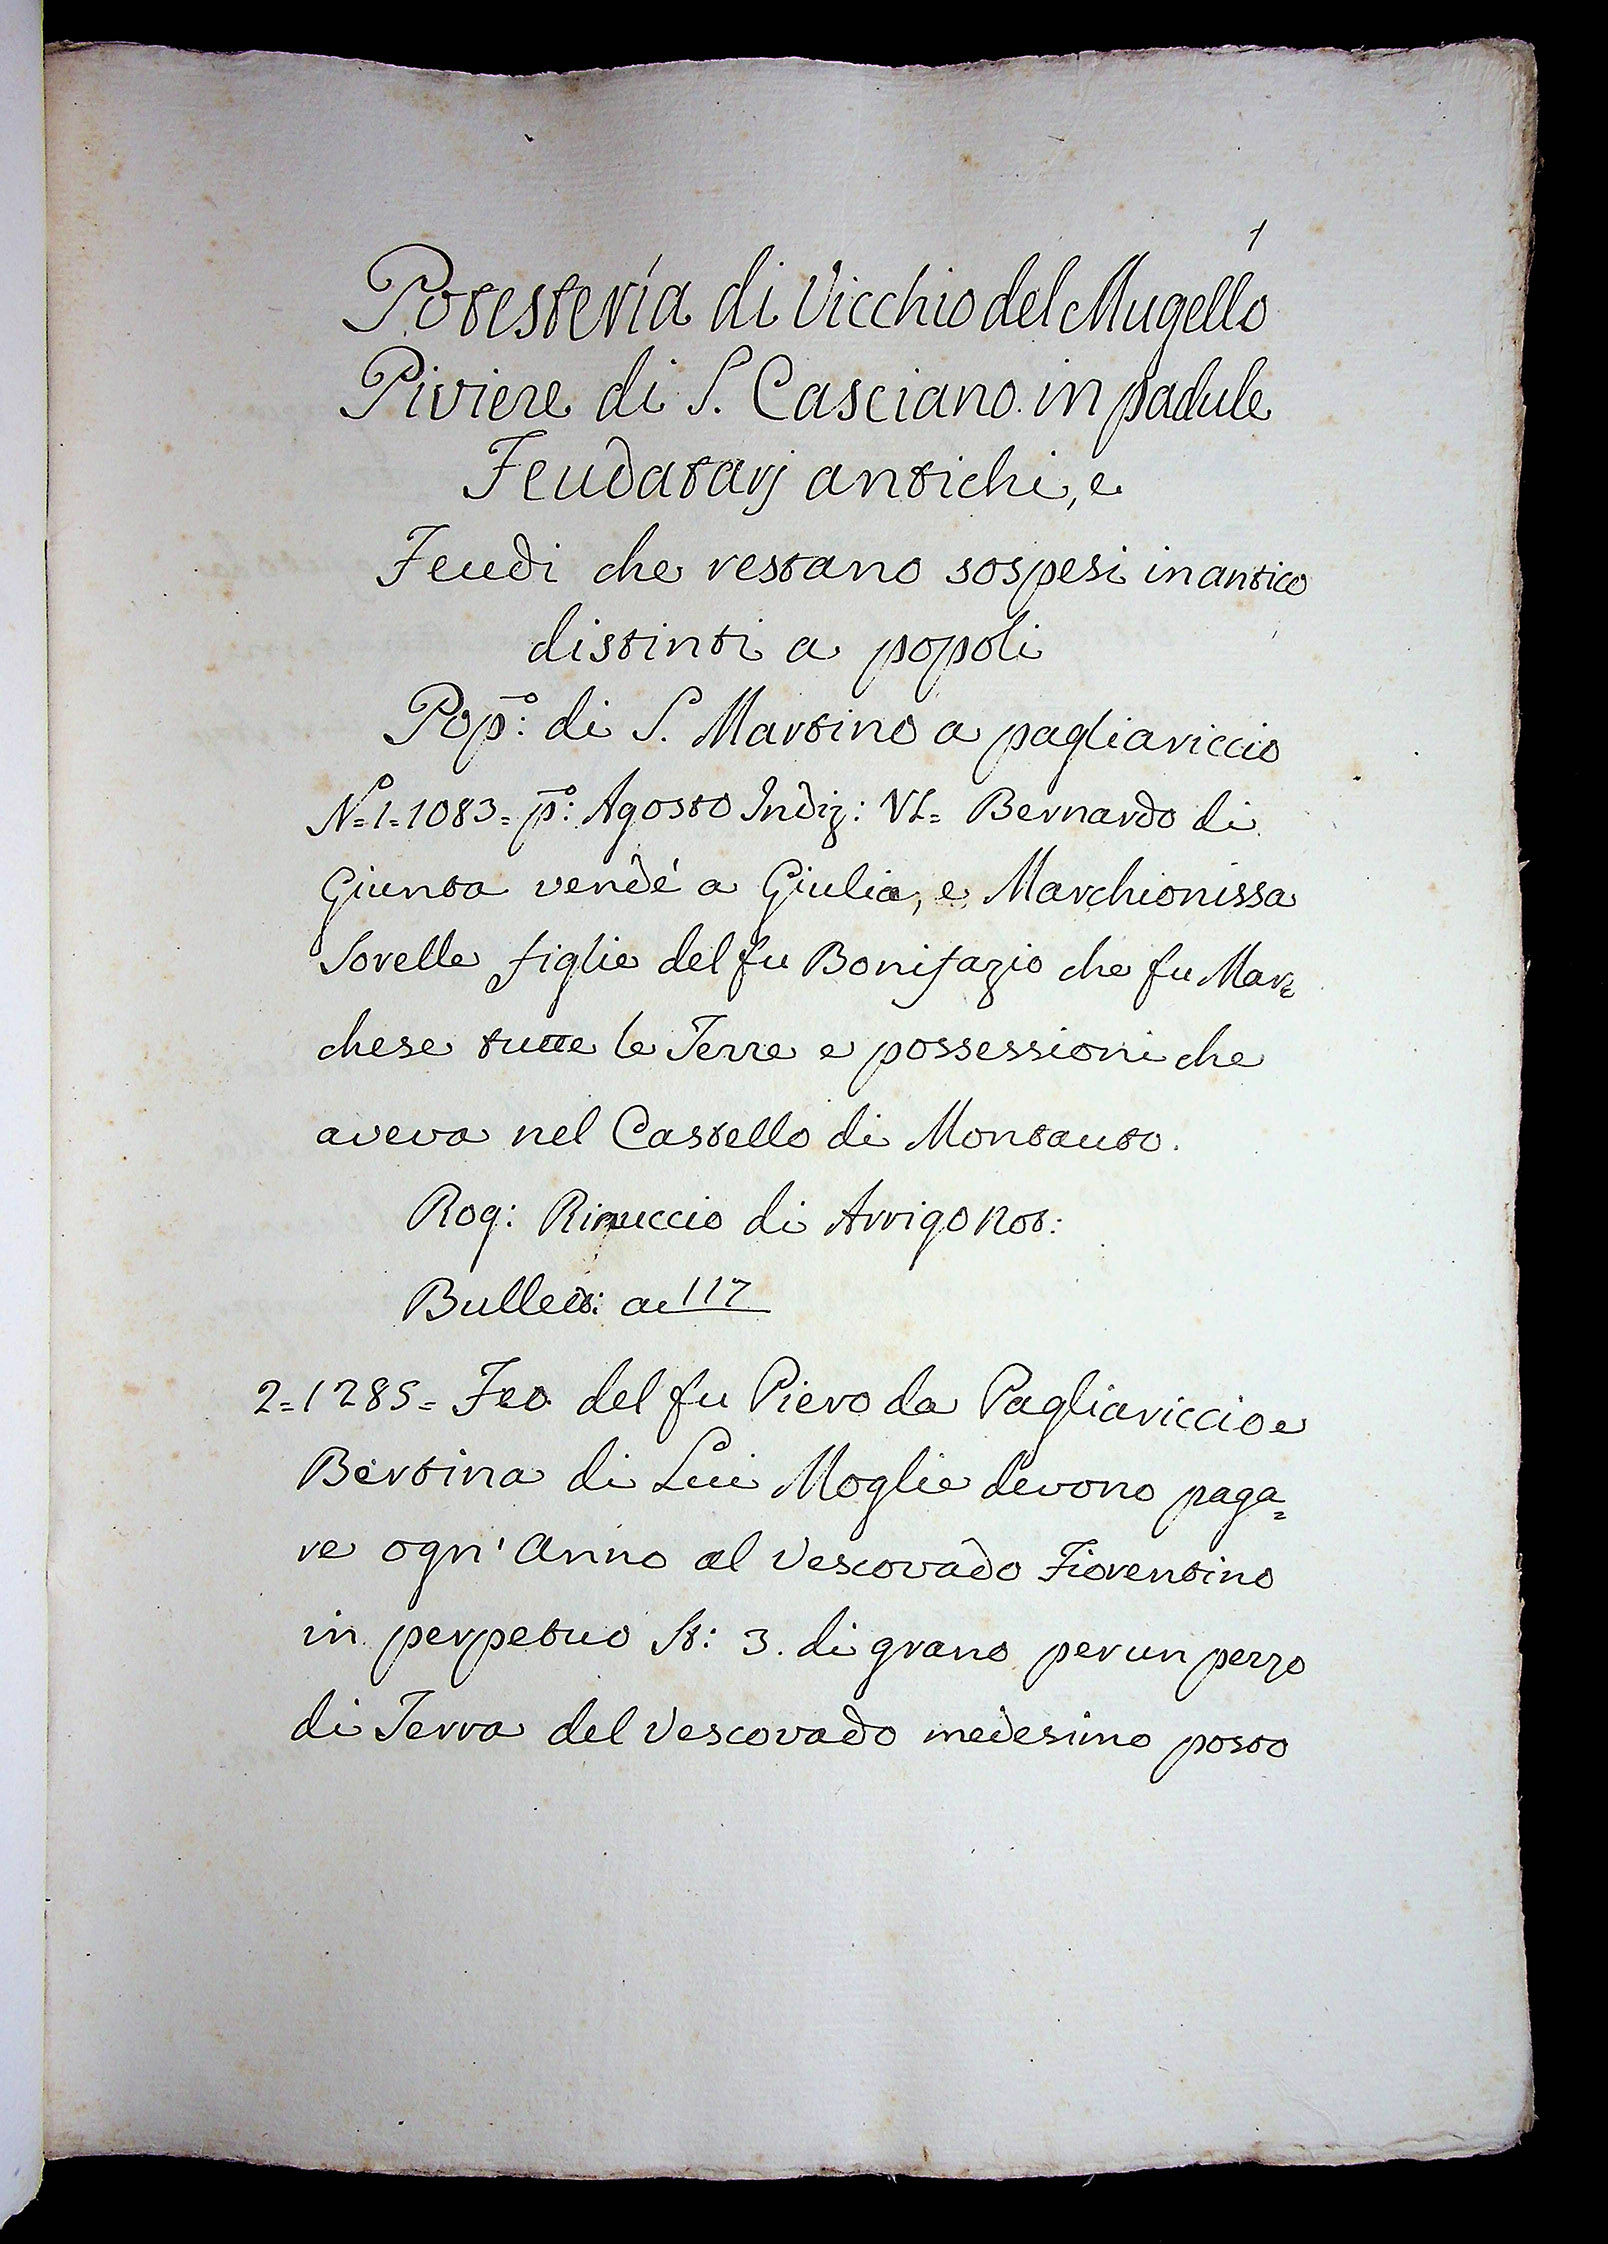 1
Potesteria di Vicchio del Mugello
Piviere di S. Casciano in padule
Feudatarj antichi, e
Feudi che restano sospesi in antico
distinti a popoli
Pop.º: di S. Martino a pagliariccio
Nº=1=1083= pº: Agosto Indiz: VI= Bernardo di
Giunta vendé a Giulia, e Marchionissa
Sorelle figlie del fu Bonifazio che fu Mar=
chese tutte le Terre e possessioni che
aveva nel Castello di Montauto.
Rog: Rinuccio di Arrigo Not:
Bullett: a 117
2=1285= Feo del fu Piero da Pagliariccio e
Bertina di Lui Moglie devono paga=
re ogn' Anno al Vescovado Fiorentino
in perpetuo St: 3. di grano per un pezzo
di Terra del Vescovado medesimo posto